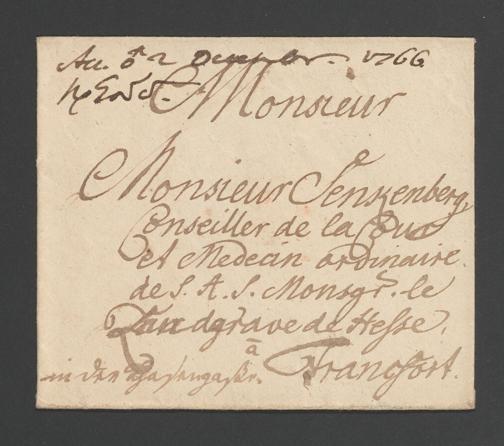 Acc. d 2 Decembr. 1766.
Monsieur
Monsieur Senkenberg,
Conseiller de la Cour
et Medecin ordinaire.
de S. A. S. Monsgr. le
Landgrave de Hesse.
à
Francfort.
in der Hasengass.